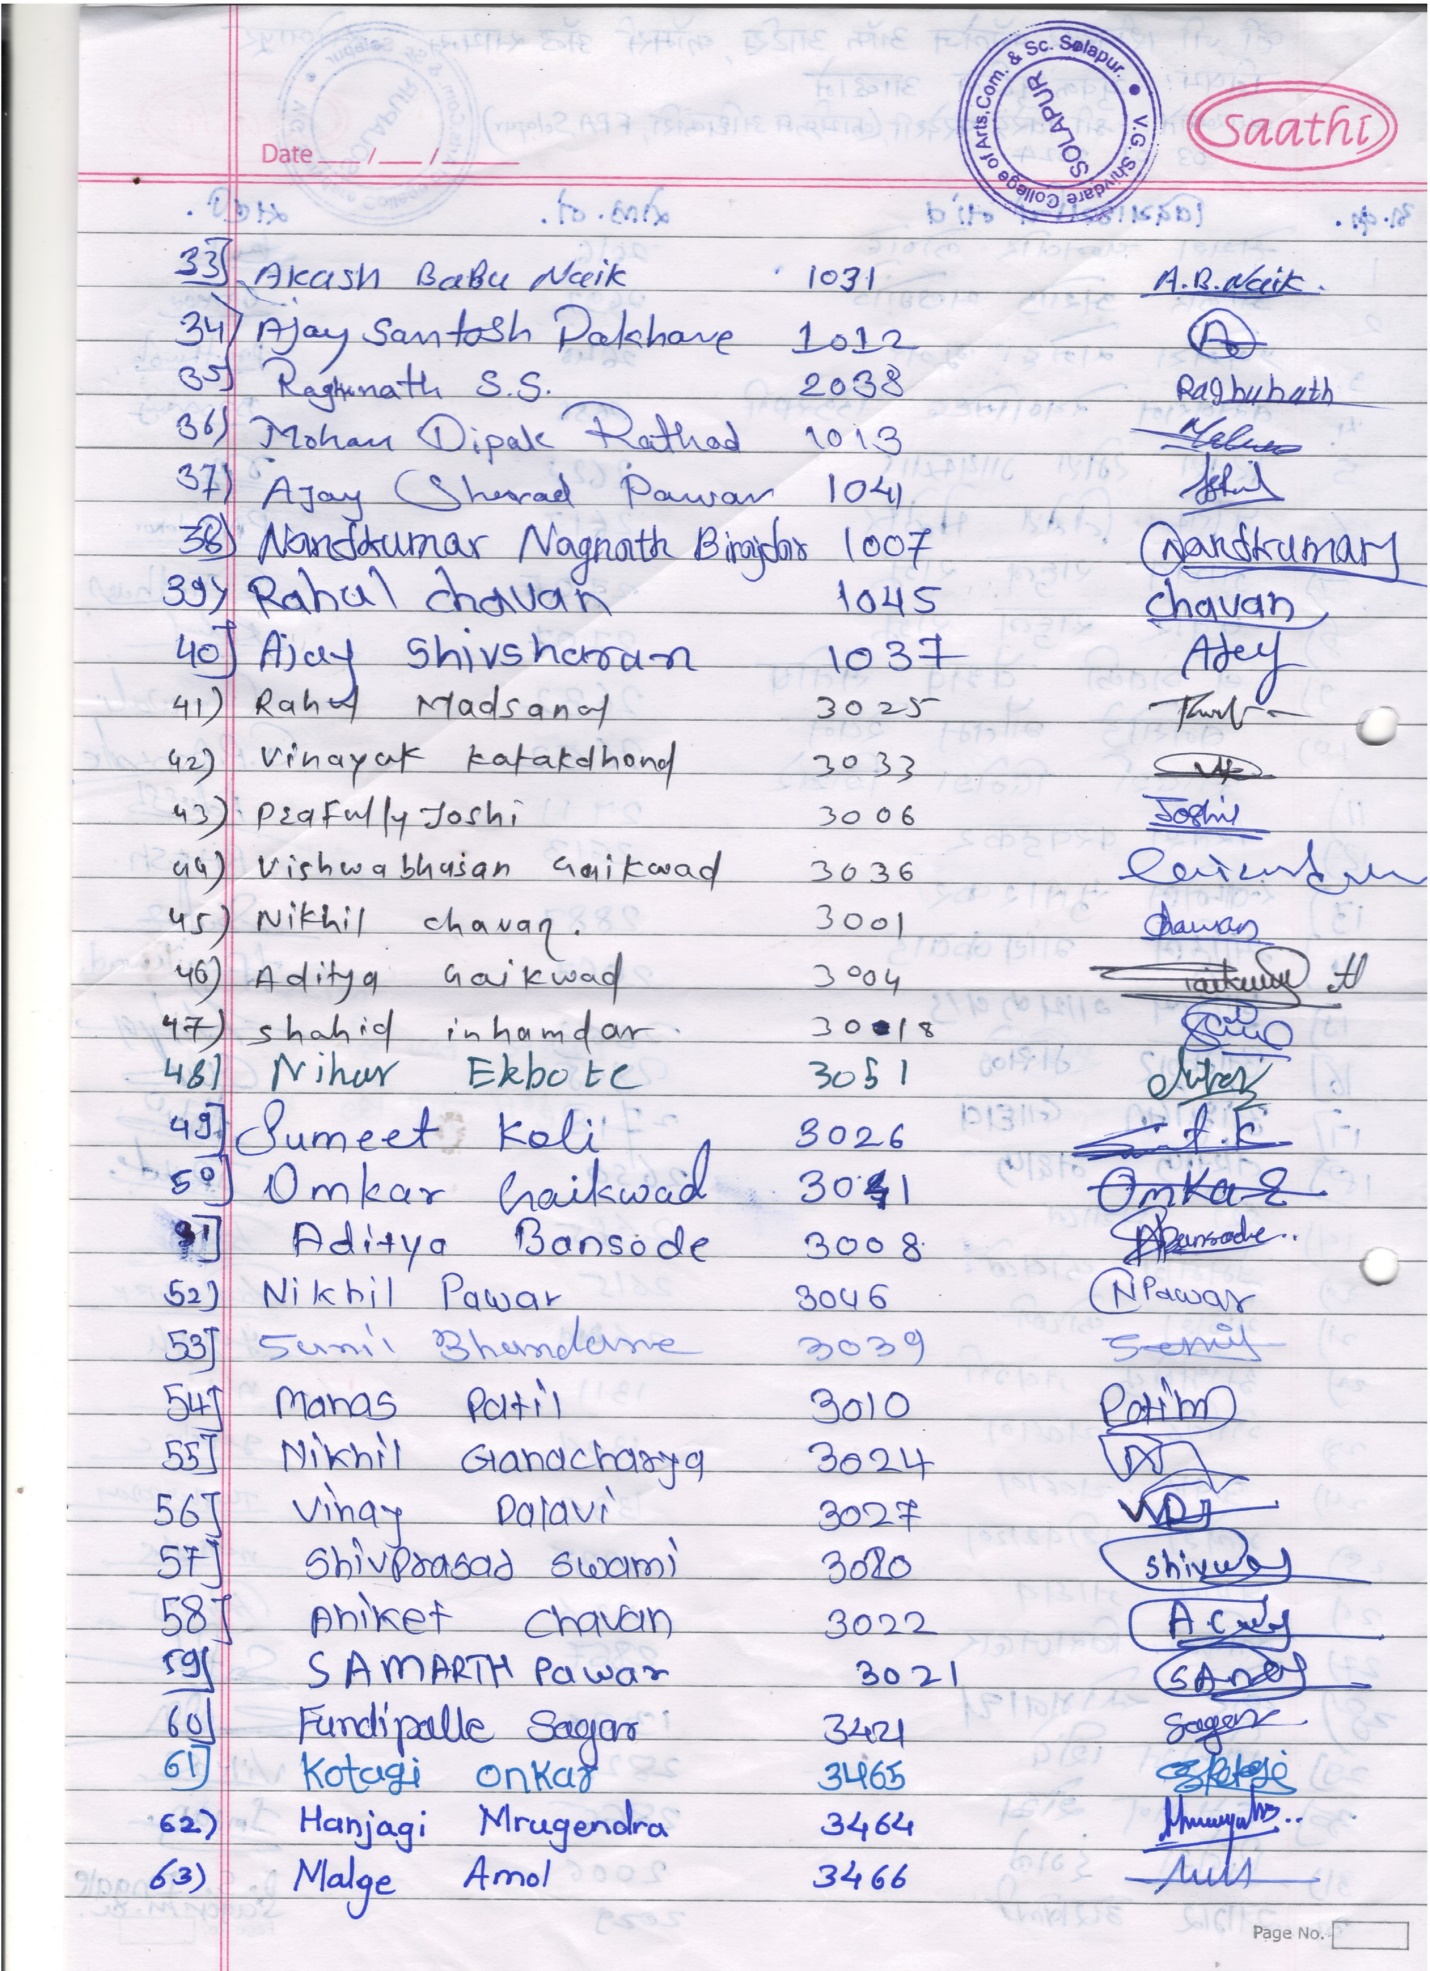 V.G. Shivdare College of Arts, Com. & Sc. Solapur.
SOLAPUR
Saathi
Date __/__/____
33] Akash Babu Naik 1031 A.B.Naik.
34) Ajay Santosh Dakhare 1012 A
35) Raghunath S.S. 2038 Raghunath
36) Mohan Dipak Rathod 1013
37) Ajay Sharad Pawar 1041
38) Nandkumar Nagnath Birajdar 1007 Nandkumar
39) Rahul chavan 1045 chavan
40] Ajay Shivsharan 1037 Ajay
41) Rahul Madsanal 3025
42) Vinayak Katakdhond 3033
43) Prafully Joshi 3006 Joshi
44) Vishwabhusan Gaikwad 3036
45) Nikhil chavan. 3001 chavan
46) Aditya Gaikwad 3004
47) Shahid inhamdar 3018
48] Nihar Ekbote 3051
49] Sumeet Koli 3026
50] Omkar Gaikwad 3041 Omkar
51] Aditya Bansode 3008 ABansode..
52) Nikhil Pawar 3046 NPawar
53] Sunil Bhandare 3039 Sunil
54] Manas Patil 3010 Patil
55] Nikhil Ganacharya 3024
56] Vinay Dalavi 3027 VD
57] Shivprasad Swami 3020
58] Aniket Chavan 3022
59] SAMARTH Pawar 3021
60] Fundipalle Sagar 3421 Sagar
61] Kotagi onkar 3465
62) Hanjagi Mrugendra 3464
63) Malge Amol 3466
Page No.